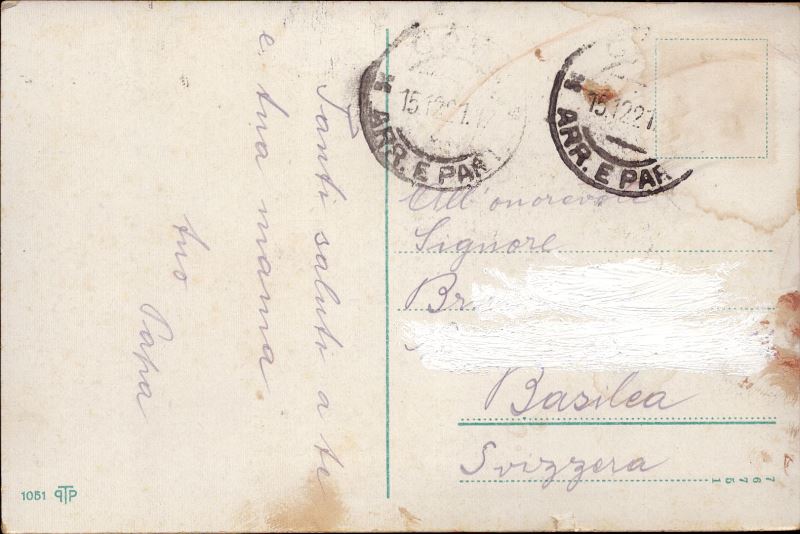 Tanti saluti a te
e tua mama
tuo Papa
15.12.21.
ARR. E PAR
15.12.21.
ARR. E PAR
All'onorevole
Signore
Br
Basilea
Svizzera
1051 PTP
7671
51